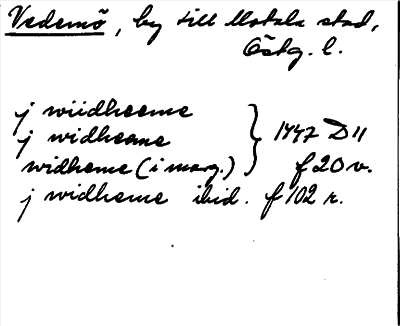 Vedemö, by till Motala stad,
Östg. l.
j wiidheeme
j widheame } 1447 D 11
widheme (i marg.) f 20 v.
j widheme ibid. f 102 r.